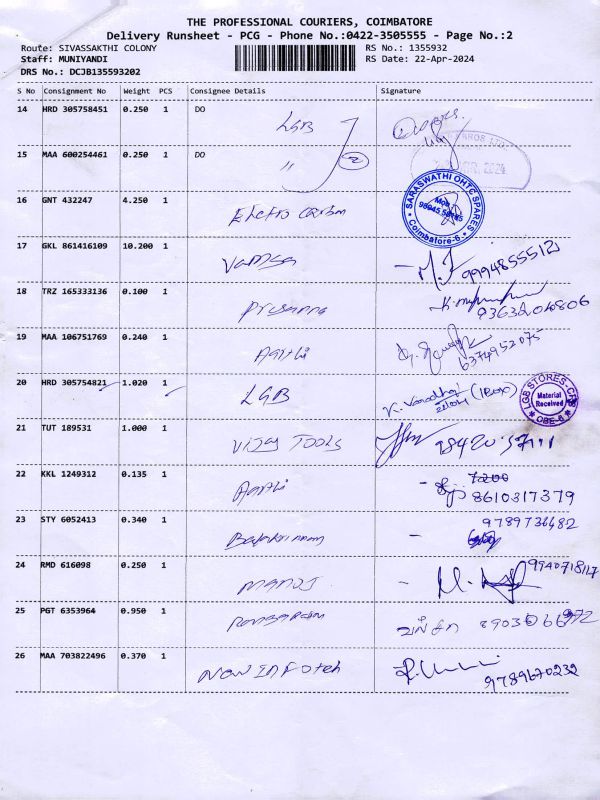 THE PROFESSIONAL COURIERS, COIMBATORE
Delivery Runsheet - PCG - Phone No.:0422-3505555 - Page No.:2
Route: SIVASSAKTHI COLONY RS No.: 1355932
Staff: MUNIYANDI RS Date: 22-Apr-2024
DRS No.: DCJB135593202
S No Consignment No Weight PCS Consignee Details Signature
14 HRD 305758451 0.250 1 DO LGB
15 MAA 600254461 0.250 1 DO " 2
16 GNT 432247 4.250 1 Electro Carbon SARASWATHI OHTC SPARES Coimbatore-6
17 GKL 861416109 10.200 1 Vamsa
18 TRZ 165333136 0.100 1 Prusanna
19 MAA 106751769 0.240 1 Aarthi 6374952075
20 HRD 305754821 1.020 1 LGB K. Varadhaj (1BOX) LGB STORES-CFB Material Received CBE-6
21 TUT 189531 1.000 1 VIJAY TOOLS
22 KKL 1249312 0.135 1 Aarthi 8610317379
23 STY 6052413 0.340 1 9789736482
24 RMD 616098 0.250 1 MANOJ 9940718117
25 PGT 6353964 0.950 1
26 MAA 703822496 0.370 1 New Infotech 9789670232